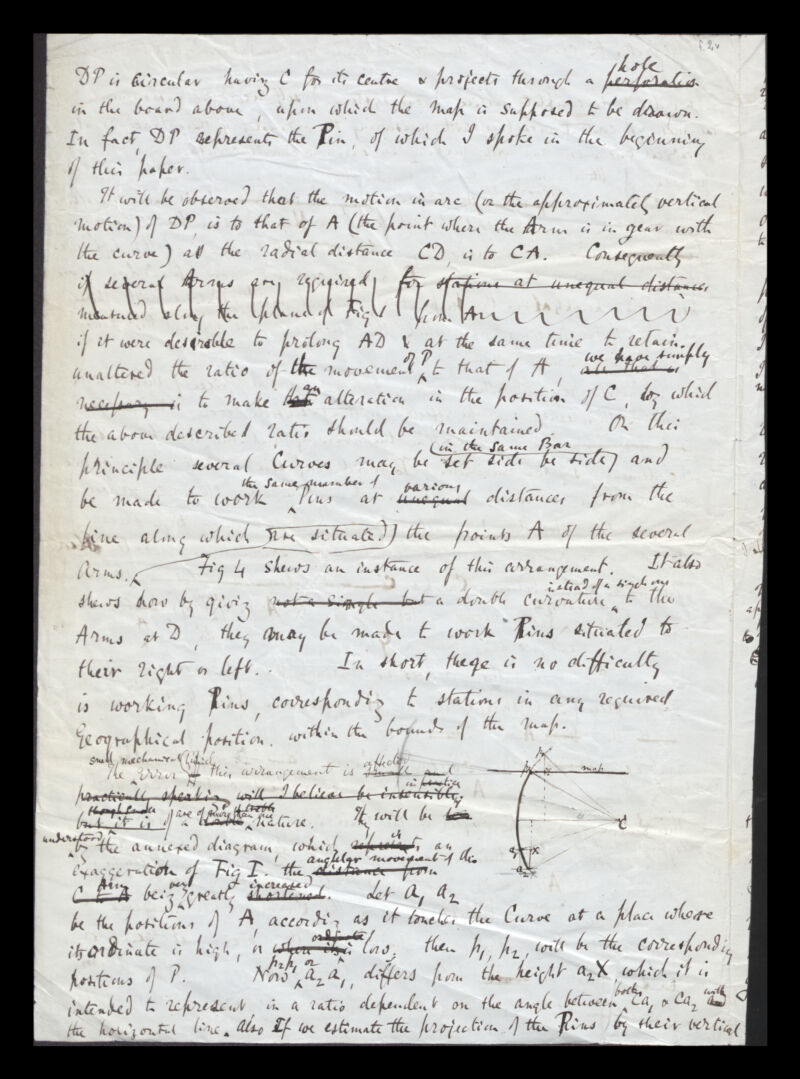 DP is circular having C for its centre & projects through a hole perforation
in the board above, upon which the map is supposed to be drawn.
In fact, DP represents the Pin, of which I spoke in the beginning
of this paper.
It will be observed that the motion in arc (or the approximately vertical
motion) of DP, is to that of A (the point where the Arm is in gear with
the curve) as the radial distance CD, is to CA. Consequently
if several Arms are required for stations at unequal distances
measured along the plane of Fig 1 from A
if it were desirable to prolong AD & at the same time to retain
unaltered the ratio of the movement of P to that of A, we have simply all that is
necessary is to make an alteration in the position of C, by which
the above described ratio should be maintained. On this
principle several Curves may be (in the same Bar set side by side) and
be made to work the same number of Pins at various unequal distances from the
line along which are situated) the points A of the several
Arms. Fig 4 shews an instance of this arrangement. It also
shews how by giving not a single but a double curvature instead of a single one to the
Arms at D, they may be made to work Pins situated to
their right or left. In short, there is no difficulty
is working Pins, corresponding to stations in any required
Geographical position, within the bounds of the map.
The small mechanical error which this arrangement is small and
practically speaking will I believe be insensibly in practice
but it is of a more than one nature. It will be
understood by the annexed diagram, which is an
exaggeration of Fig I. the angular movement of the distance from
C to A being very greatly increased shortened. Let a1 a2
be the positions of A, according as it touches the Curve at a place where
its ordinate is high, or when its ordinate is low, then p1, p2, will be the corresponding
positions of P. Now p2p1 or a2 a1, differs from the height a2X which it is
intended to represent, in a ratio dependent on the angle between both Ca1 & Ca2 with
the horizontal line. also If we estimate the projection of the Pins by their vertical
map
C
a1 X
a2